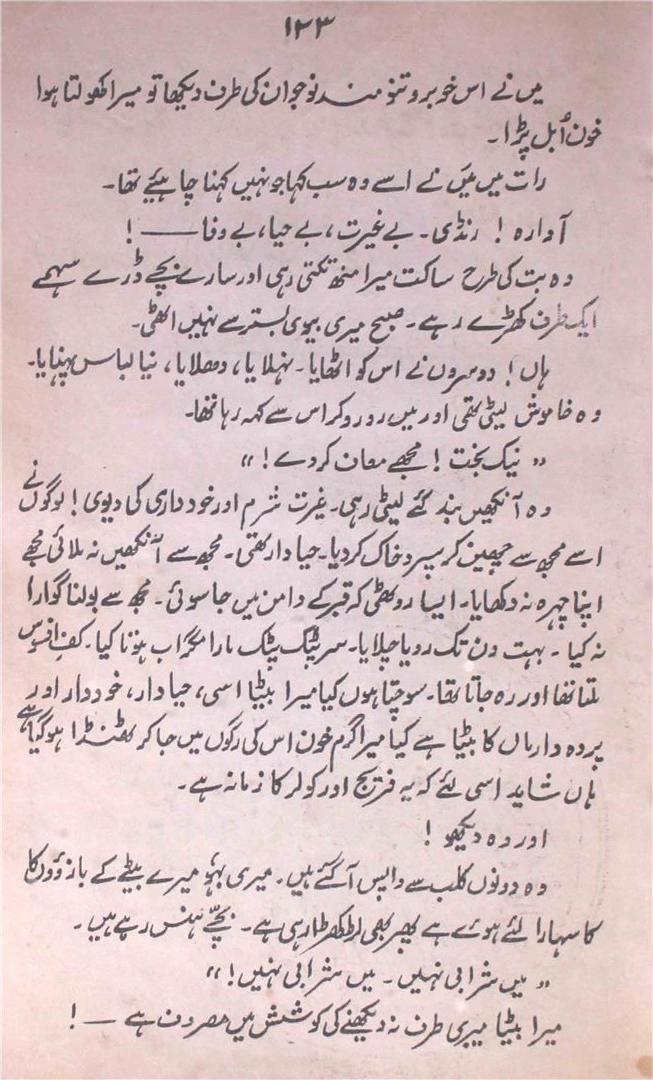 ۱۲۳
میں نے اس خوبرو تنو مند نوجوان کی طرف دیکھا تو میرا کھولتا ہوا
خون اُبل پڑا۔
رات میں میَں نے اسے وہ سب کہا جو نہیں کہنا چاہیئے تھا۔
آوارہ ! رنڈی۔ بے غیرت، بے حیا، بے وفا —— !
وہ بت کی طرح ساکت میرا منھ تکتی رہی اور سارے بچے ڈرے سہمے
ایک طرف کھڑے رہے۔ صبح میری بیوی بستر سے نہیں اٹھی۔
ہاں! دوسروں نے اس کو اٹھایا۔ نہلایا، دھلایا، نیا لباس پہنایا۔
وہ خاموش لیٹی تھی اور میں رو رو کر اس سے کہہ رہا تھا۔
”نیک بخت ! مجھے معاف کر دے !“
وہ آنکھیں بند کئے لیٹی رہی۔ غیرت شرم اور خود داری کی دیوی ! لوگوں نے
اسے مجھ سے چھین کر سپرد خاک کر دیا۔ حیا دار تھی۔ مجھ سے آنکھیں نہ ملائی مجھے
اپنا چہرہ نہ دکھایا۔ ایسا روٹھی کہ قبر کے دامن میں جا سوئی۔ مجھ سے بولنا گوارا
نہ کیا۔ بہت دن تک رویا چلایا۔ سر پٹک پٹک مارا مگر اب ہوتا کیا۔ کف افسوس
ملتا تھا اور رہ جاتا تھا۔ سوچتا ہوں کیا میرا بیٹا اسی، حیا دار، خود دار اور
پردہ دار ماں کا بیٹا ہے کیا میرا گرم خون اس کی رگوں میں جا کر ٹھنڈا ہو گیا ہے
ہاں شاید اسی لئے کہ یہ فریج اور کولر کا زمانہ ہے۔
اور وہ دیکھو !
وہ دونوں کلب سے واپس آ گئے ہیں۔ میری بہُو میرے بیٹے کے بازؤوں کا
کا سہارا لئے ہوے ہے پھر بھی لڑکھڑا رہی ہے۔ بچّے ہنس رہے ہیں۔
”میں شرابی نہیں۔ میں شرابی نہیں !“
میرا بیٹا میری طرف نہ دیکھنے کی کوشش میں مصروف ہے — !